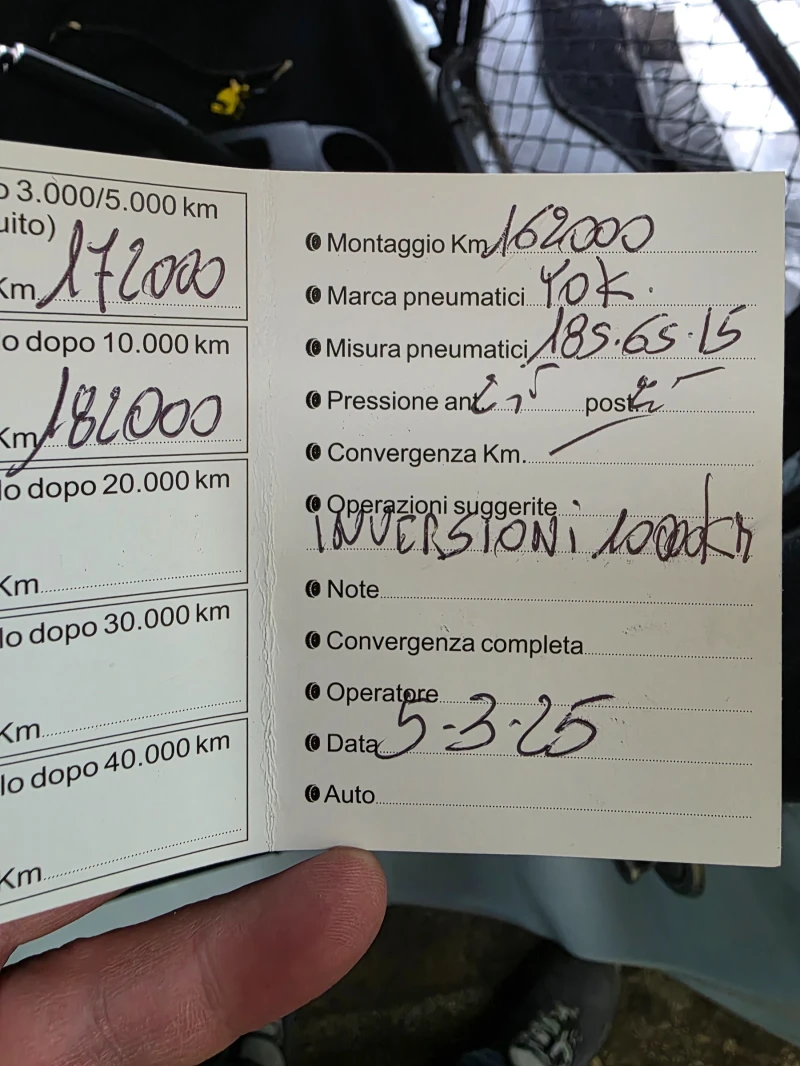 o 3.000/5.000 km
uito)
Km. 172000
o dopo 10.000 km
Km 182000
lo dopo 20.000 km
Km
lo dopo 30.000 km
Km
lo dopo 40.000 km
Km
Montaggio Km 162000
Marca pneumatici YOK.
Misura pneumatici 185.65.15
Pressione ant 2,5 post.
Convergenza Km.
Operazioni suggerite
INVERSIONI 10000Km
Note
Convergenza completa
Operatore
Data 5-3-25
Auto